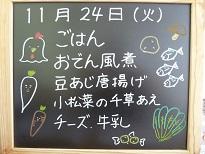 11月24日(火)
ごはん
おでん風煮
豆あじ唐揚げ
小松菜の千草あえ
チーズ.牛乳